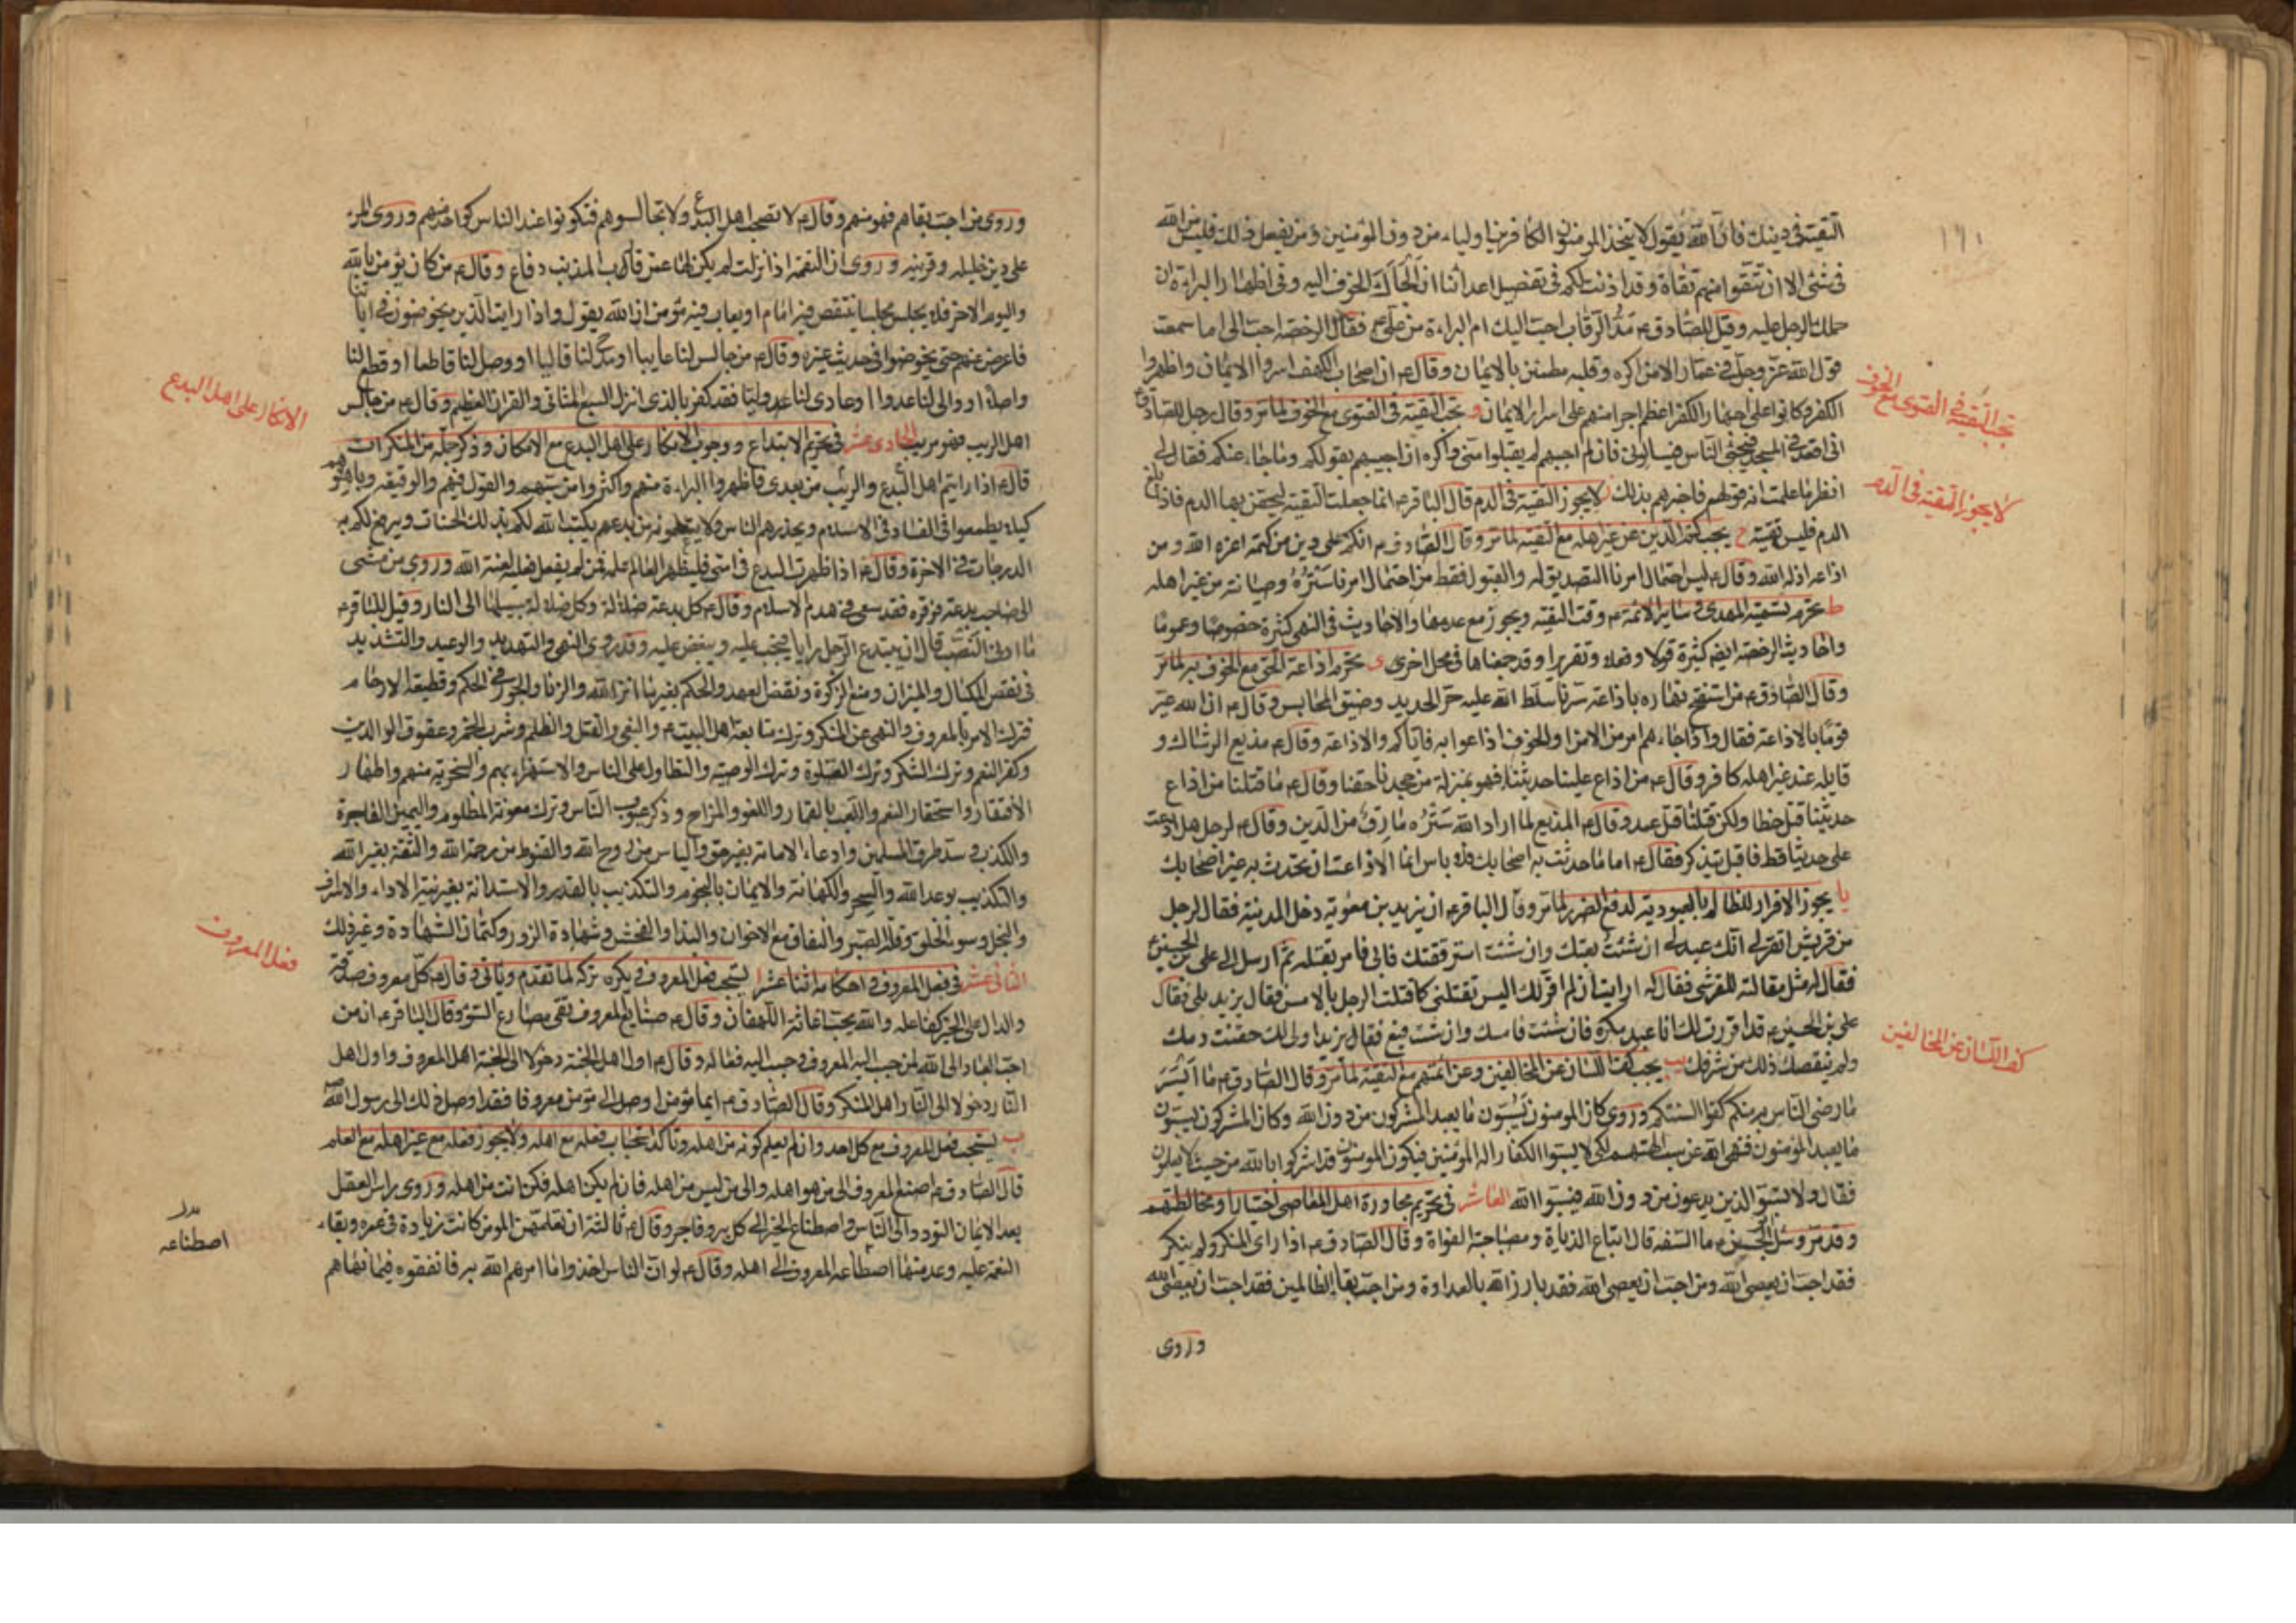 التقية في دينك فان الله يقول لا يتخذ المومنون الكافرين اولياء من دون المؤمنين ومن يفعل ذلك فليس من الله
في شئ الا ان تتقوا منهم تقاة وقد اذنت لكم في تفضيل اعدائنا ان الجاك الخوف اليه وفي اظهار البراءة ان
حملك الوجل عليه وقيل للصادق ع مد الرقاب احب اليك ام البراءة من علي ع فقال الرخصة احب الي اما سمعت
قول الله عز وجل في عمار الا من اكره وقلبه مطمئن بالايمان وقال ع ان اصحاب الكهف اسروا الايمان واظهروا
الكفر وكانوا على اجهار الكفر اعظم اجرا منهم على اسرار الايمان و تجب التقية في الفتوى مع الخوف لما مر وقال رجل للصادق ع
اني اقعد في المسجد فيجئ الناس فيسالوني فان لم اجبهم لم يقبلوا مني واكره ان اجيبهم بقولكم وما جاء عنكم فقال لي
انظر ما علمت انه قولهم فاخبرهم بذلك ز لا يجوز التقية في الدم قال الباقر ع انما جعلت التقية ليحقن بها الدم فاذا بلغ
الدم فليس تقية ح يجب كتم الدين عن غير اهله مع التقية لما مر وقال الصادق ع انكم على دين من كتمه اعزه الله ومن
اذاعه اذله الله وقال ع ليس احتمال امرنا التصديق له والقبول فقط من احتمال امرنا ستره وصيانته من غير اهله
ط تحرم تسمية المهدي ع وساير الائمة ع وقت التقية ويجوز مع عدمها والاحاديث في النهي كثيرة خصوصا وعموما
واحاديث الرخصة ايضا كثيرة قولا وفعلا وتقريرا وقد جمعناها في محل اخر ى يحرم اذاعة الحق مع الخوف به لما مر
وقال الصادق ع من استفتح نهاره باذاعة سرنا سلط الله عليه حر الحديد وضيق المحابس وقال ع ان الله عير
قوما بالاذاعة فقال واذا جاءهم امر من الامن او الخوف اذاعوا به فاياكم والاذاعة وقال ع مذيع السر شاك و
قايله عند غير اهله كافر وقال ع من اذاع علينا حديثنا فهو بمنزلة من جحدنا حقنا وقال ع ما قتلنا من اذاع
حديثنا قتل خطا ولكن قتلنا قتل عمد وقال ع المذيع لما اراد الله ستره مارق من الدين وقال ع لرجل هل اذعت
علي حديثا قط فاقبل يتذكر فقال ع اما ما حدثت به اصحابك فلا باس انما الاذاعة ان تحدث به غير اصحابك
يا يجوز الاقرار للظالم بالعبودية لدفع الضرر لما مر وقال الباقر ع ان يزيد بن معوية دخل المدينة فقال لرجل
من قريش اتقر لي انك عبد لي ان شئت بعتك وان شئت استرققتك فابى فامر بقتله ثم ارسل الى علي بن الحسين ع
فقال له مثل مقالته للقرشي فقال له ارايت ان لم اقر لك اليس تقتلني كما قتلت الرجل بالامس فقال يزيد بلى فقال
علي بن الحسين ع قد اقررت لك انا عبد مكره فان شئت فامسك وان شئت فبع فقال يزيد اولى لك حقنت دمك
ولم ينقصك ذلك من شرفك يب يجب كف اللسان عن المخالفين وعن ائمتهم مع التقية لما مر وقال الصادق ع ما ايسر
ما رضى الناس به منكم كفوا السنتكم وروي كان المومنون يسبون ما يعبد المشركون من دون الله وكان المشركون يسبون
ما يعبد المؤمنون فنهى الله عن سب الهتهم لكي لا يسبوا الكفار اله المؤمنين فيكون المومنون قد اشركوا بالله من حيث لا يعلمون
فقال ولا تسبوا الذين يدعون من دون الله فيسبوا الله العاشر في تحريم مجاورة اهل المعاصي اختيارا ومخالطتهم
وقد مر وسئل الحسن ع ما السفه قال اتباع الدناة ومصاحبة الغواة وقال الصادق ع اذا راى المنكر ولم ينكر
فقد احب ان يعصى الله ومن احب ان يعصى الله فقد بارز الله بالعداوة ومن احب بقاء الظالمين فقد احب ان يعصى الله
وروى
تجب التقية في الفتوى مع الخوف
لا يجوز التقية في الدم
كف اللسان عن المخالفين
وروى من احب بقاهم فهو منهم وقال ع لا تصحب اهل البدع ولا تجالسوهم فتكونوا عند الناس كواحد منهم وروى المرء
على دين خليله وقرينه وروى ان النقمة اذا نزلت لم يكن لها عمن قارب المذنب دفاع وقال ع من كان يؤمن بالله
واليوم الاخر فلا يجلس مجلسا ينتقص فيه امام او يعاب فيه مؤمن ان الله يقول واذا رايت الذين يخوضون في اياتنا
فاعرض عنهم حتى يخوضوا في حديث غيره وقال ع من جالس لنا عايبا او مدح لنا قاليا او وصل لنا قاطعا او قطع لنا
واصلا او والى لنا عدوا او عادى لنا وليا فقد كفر بالذي انزل السبع المثاني والقران العظيم وقال ع من جالس
اهل الريب فهو مريب الحادى عشر في تحريم الابتداع ووجوب الانكار على اهل البدع مع الامكان وذكر جملة من المنكرات
قال ع اذا رايتم اهل البدع والريب من بعدي فاظهروا البراءة منهم واكثروا من سبهم والقول فيهم والوقيعة وباهتوهم
كيلا يطمعوا في الفساد في الاسلام ويحذرهم الناس ولا يتعلمونه من بدعهم يكتب الله لكم بذلك الحسنات ويرفع لكم به
الدرجات في الاخرة وقال ع اذا ظهرت البدع في امتي فليظهر العالم علمه فمن لم يفعل فعليه لعنة الله وروى من مشى
الى صاحب بدعة فوقره فقد سعى في هدم الاسلام وقال ع كل بدعة ضلالة وكل ضلالة سبيلها الى النار وقيل للباقر ع
ما ادنى النصب قال ان يبتدع الرجل رايا فيحب عليه ويبغض عليه وقد روى النهي والتهديد والوعيد والتشديد
في نقص المكيال والميزان ومنع الزكوة ونقض العهد والحكم بغير ما انزل الله والزنا والجور في الحكم وقطيعة الارحام
وترك الامر بالمعروف والنهي عن المنكر وترك متابعة اهل البيت ع والبغي والقتل والظلم وشرب الخمر وعقوق الوالدين
وكفر النعم وترك الشكر وترك الصلوة وترك الوصية والتطاول على الناس والاستهزاء بهم والسخرية منهم واظهار
الافتقار واستحقار النعم واللعب بالقمار واللغو والمزاح وذكر عيوب الناس وترك معونة المظلوم واليمين الفاجرة
والكذب وسد طرق المسلمين وادعاء الامامة بغير حق والياس من روح الله والقنوط من رحمة الله والثقة بغير الله
والتكذيب بوعد الله والسحر والكهانة والايمان بالنجوم والتكذيب بالقدر والاستدانة بغير نية الاداء والاسراف
والبخل وسوء الخلق وقلة الصبر والنفاق مع الاخوان والبذاء والفحش وشهادة الزور وكتمان الشهادة وغير ذلك
الثانى عشر في فعل المعروف واحكامه اثنا عشر ا يستحب فعل المعروف ويكره تركه لما تقدم وياتي وقال ع كل معروف صدقة
والدال على الخير كفاعله والله يحب اغاثة اللهفان وقال ع صنايع المعروف تقي مصارع السوء وقال الباقر ع ان من
احب العباد الى الله لمن حبب اليه المعروف وحبب اليه فعاله وقال ع اول اهل الجنة دخولا الى الجنة اهل المعروف واول اهل
النار دخولا الى النار اهل المنكر وقال الصادق ع ايما مؤمن اوصل الى مؤمن معروفا فقد اوصل ذلك الى رسول الله ص
ب يستحب فعل المعروف مع كل احد وان لم يعلم كونه من اهله وتاكد استحباب فعله مع اهله ولا يجوز فعله مع غير اهله مع العلم
قال الصادق ع اصنع المعروف الى من هو اهله والى من ليس من اهله فان لم يكن اهله فكن انت من اهله وروى راس العقل
بعد الايمان التودد الى الناس واصطناع الخير الى كل بر وفاجر وقال ع ثالثة ان تعلمهن المومن كانت زيادة في عمره وبقاء
النعمة عليه وعد منها اصطناعه المعروف الى اهله وقال ع لو ان الناس اخذوا ما امرهم الله به فانفقوه فيما نهاهم
الانكار على اهل البدع
فعل المعروف
اصطناعه